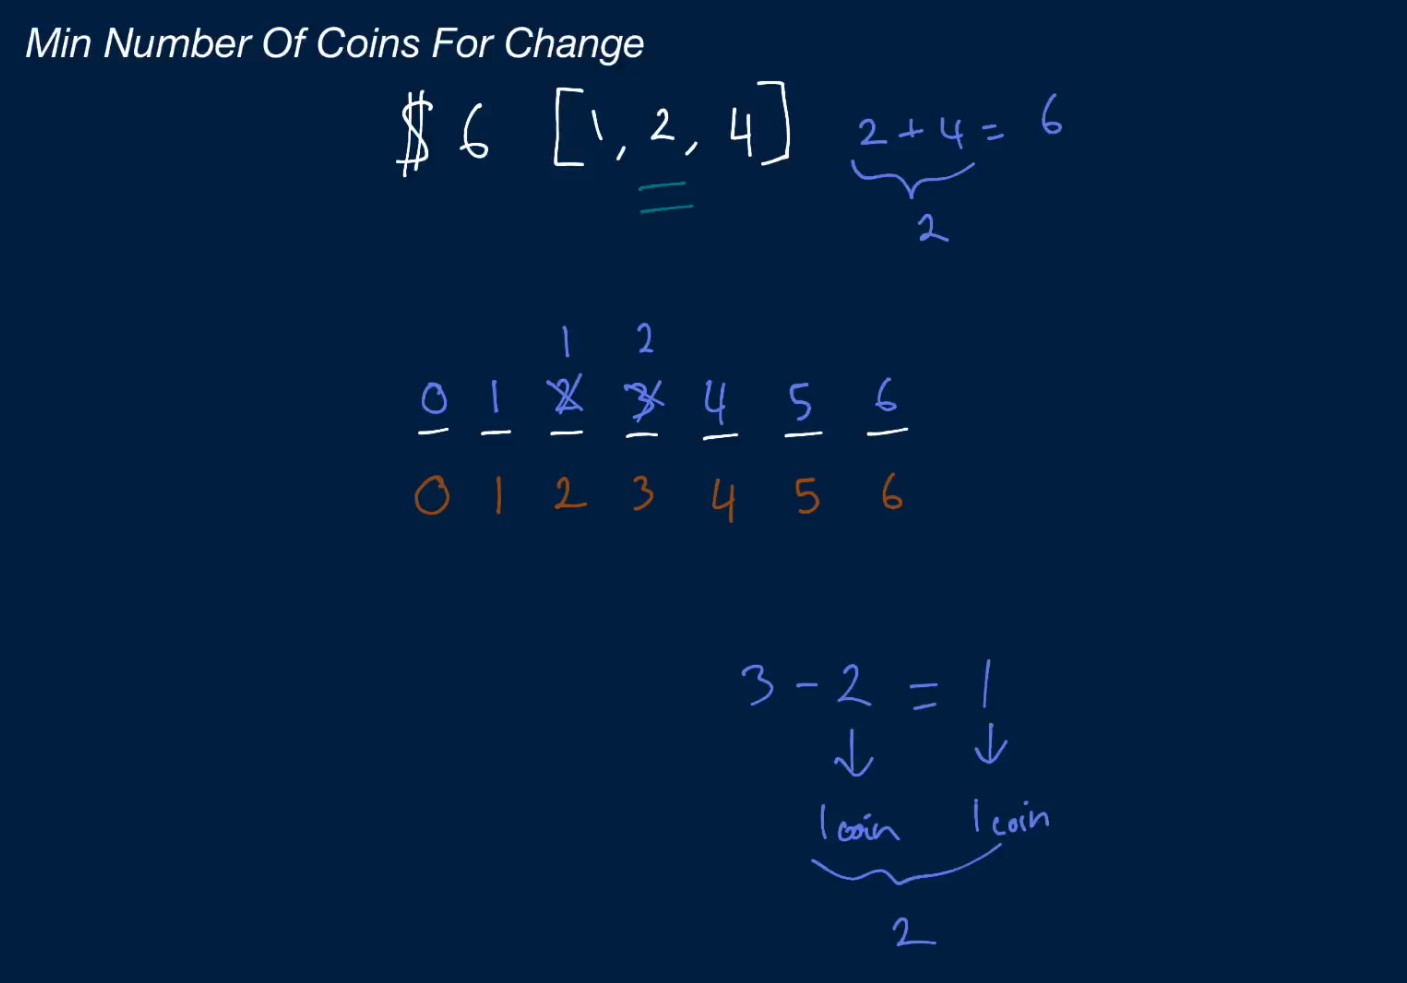 Min Number Of Coins For Change
$ 6 [1, 2, 4] 2 + 4 = 6
2
1 2
0 1 2 3 4 5 6
0 1 2 3 4 5 6
3 - 2 = 1
1 coin 1 coin
2